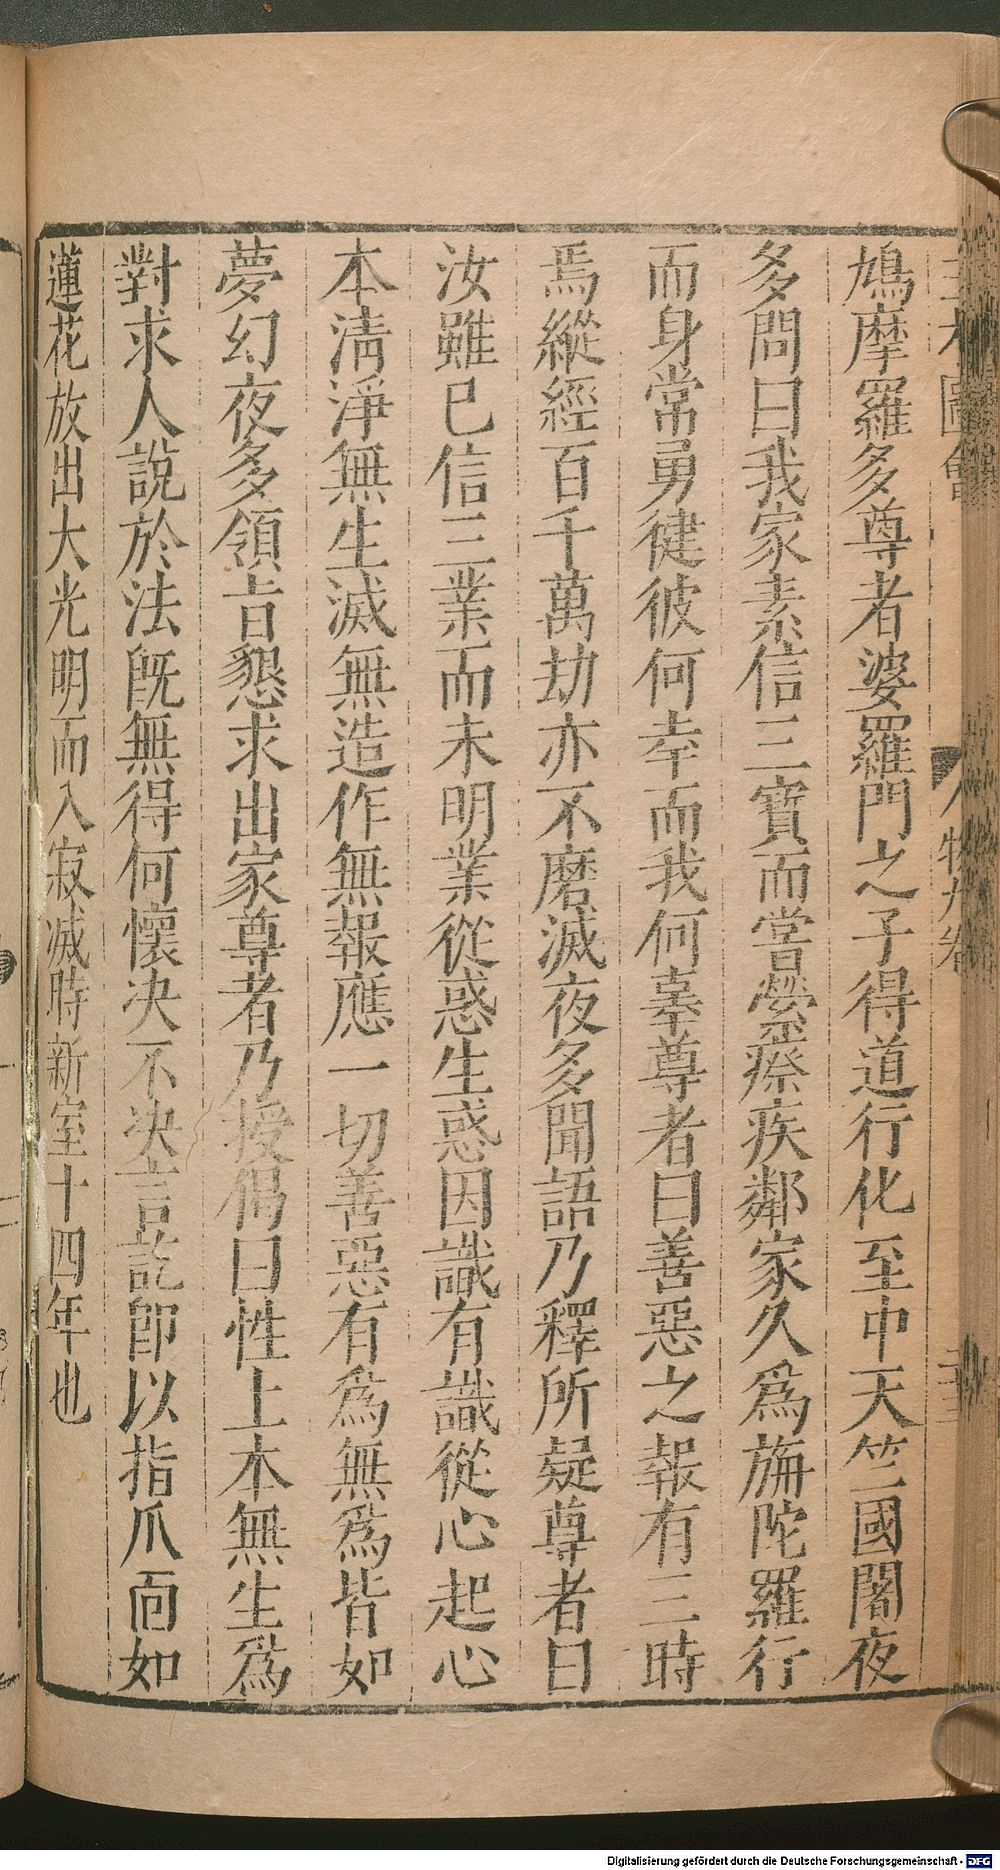 鳩摩羅多尊者婆羅門之子得道行化至中天竺國闍夜
多問曰我家素信三寶而嘗縈瘵疾鄰家久爲旃陀羅行
而身常勇健彼何幸而我何辜尊者曰善惡之報有三時
焉縱經百千萬劫亦不磨滅夜多聞語乃釋所疑尊者曰
汝雖已信三業而未明業從惑生惑因識有識從心起心
本淸淨無生滅無造作無報應一切善惡有爲無爲皆如
夢幻夜多領旨懇求出家尊者乃授偈曰性上本無生爲
對求人說於法旣無得何懷決不決言訖卽以指爪面如
蓮花放出大光明而入寂滅時新室十四年也
人物九卷
Digitalisierung gefördert durch die Deutsche Forschungsgemeinschaft - DFG